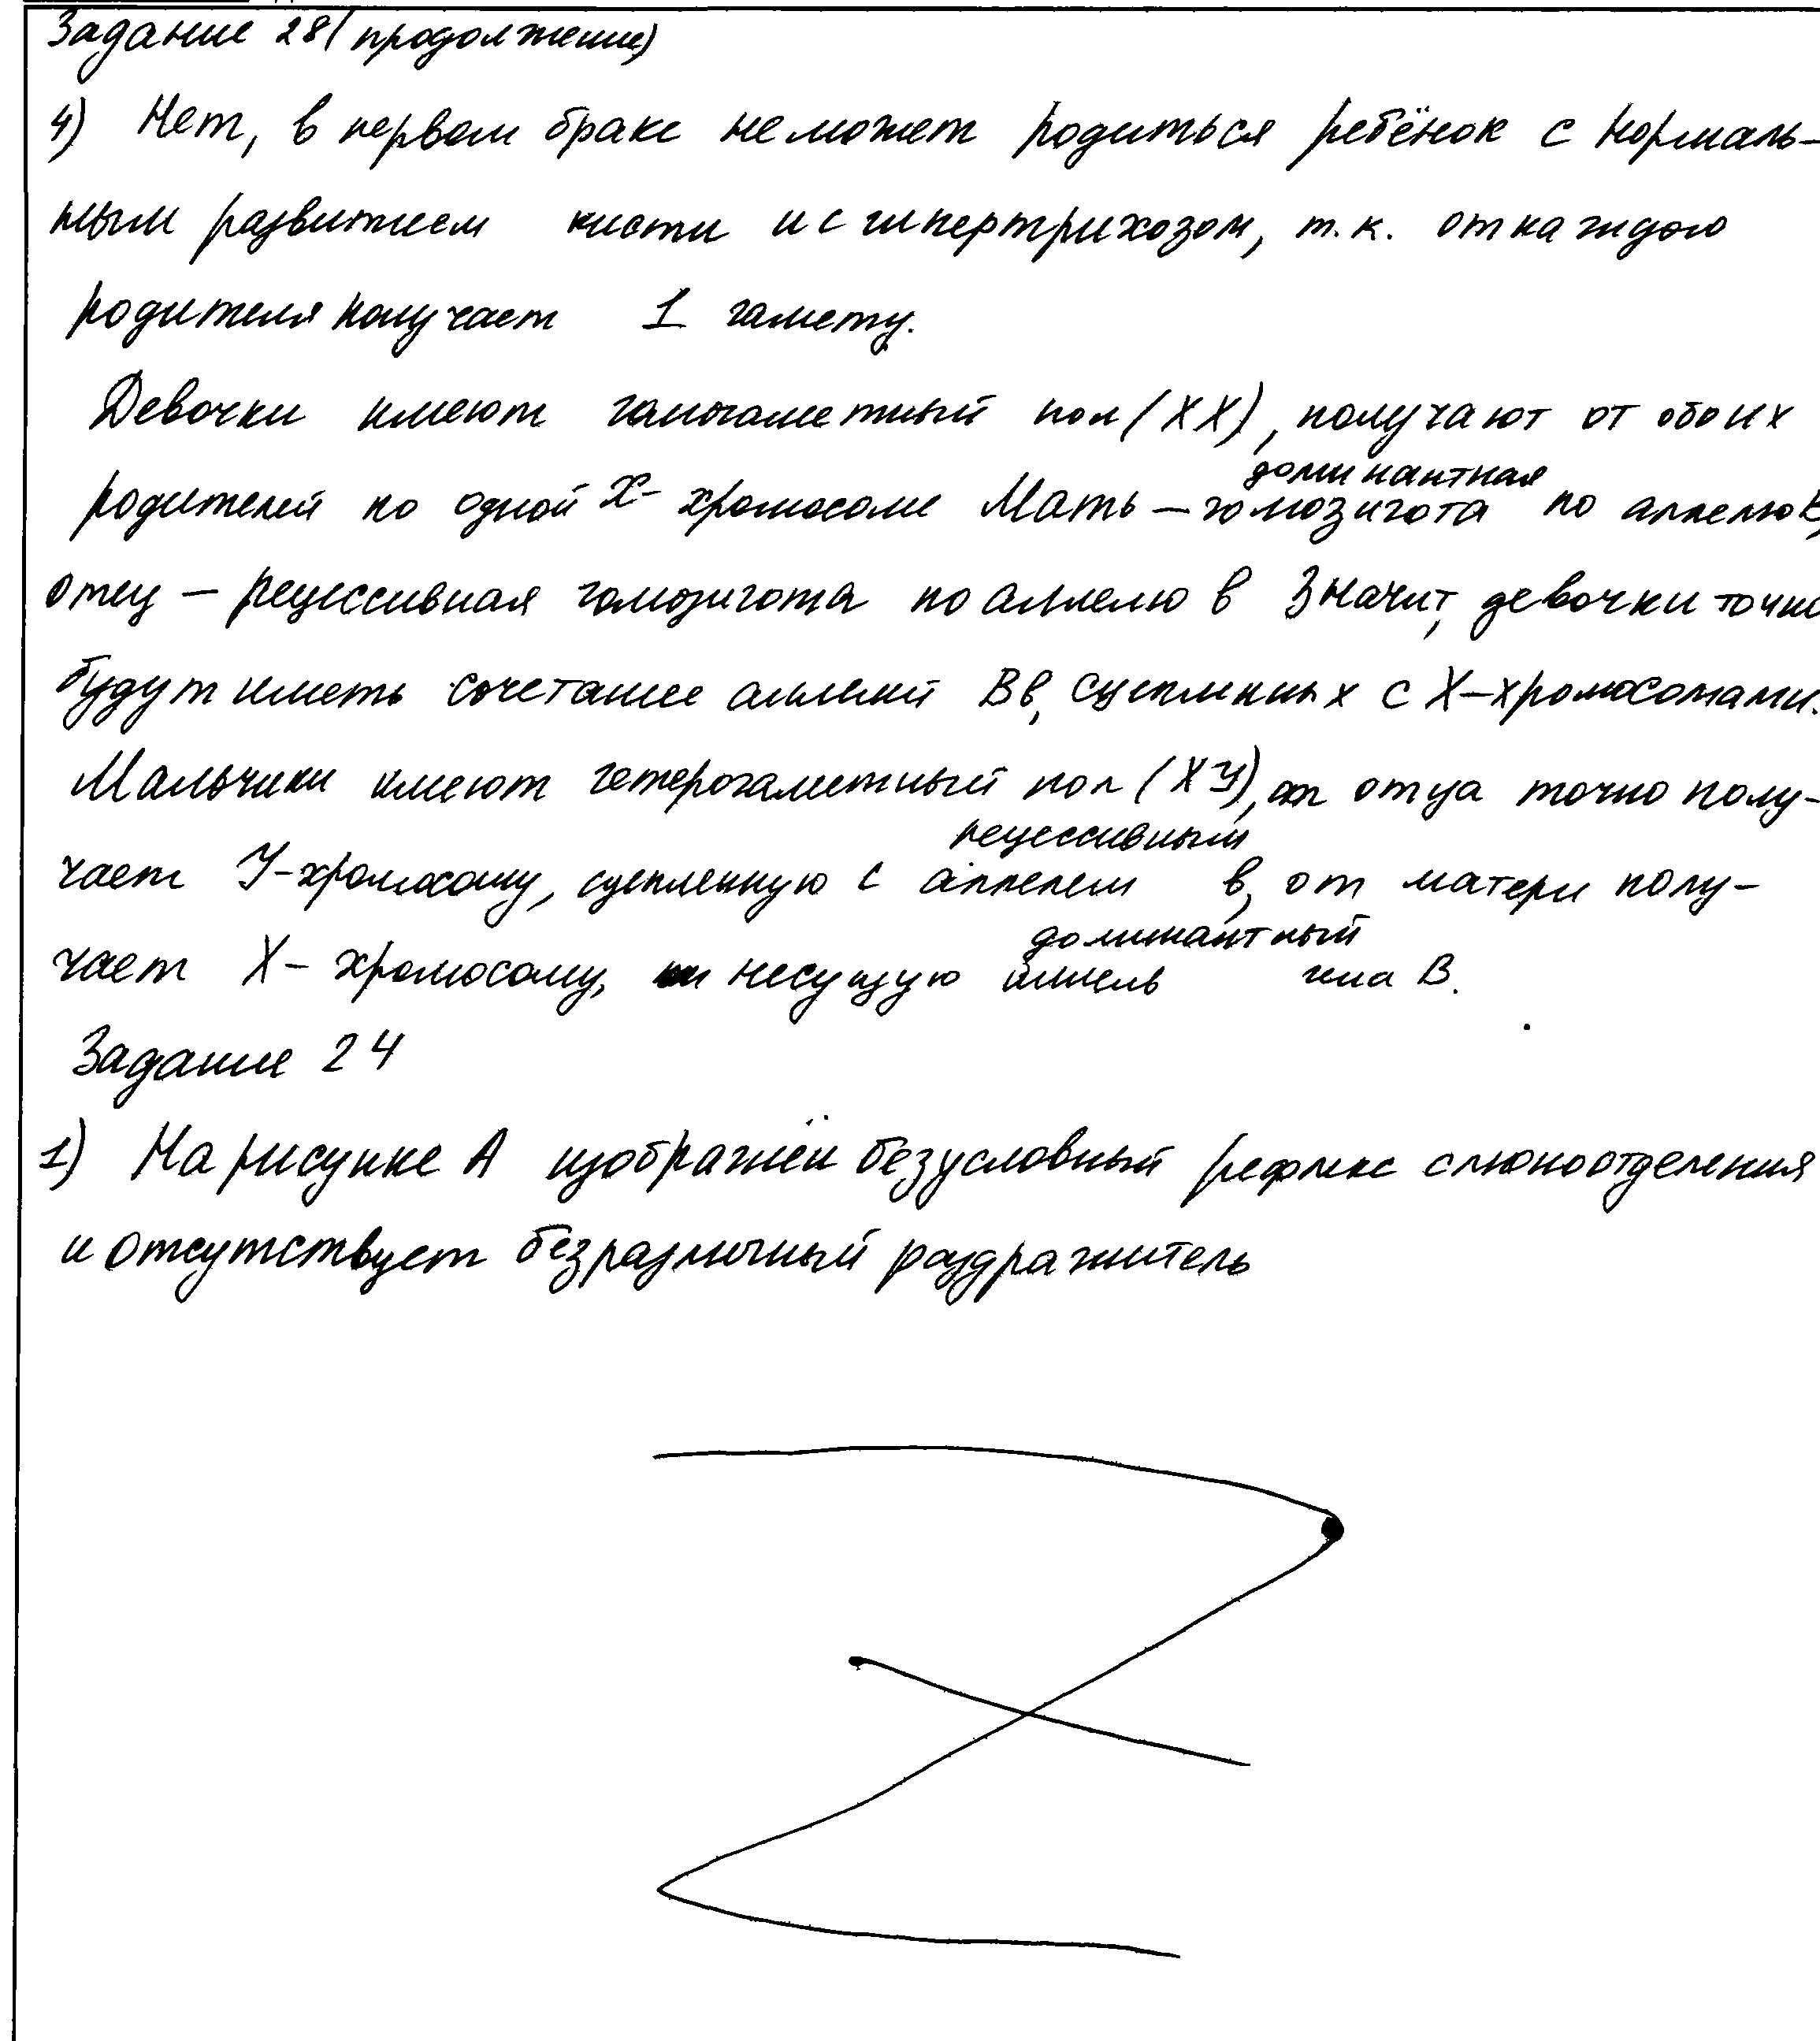 Задание 28 (продолжение)
4) Нет, в первом браке не может родиться ребёнок с нормаль-
ным развитием кисти и с гипертрихозом, т.к. от каждого
родителя получает 1 гамету.
Девочки имеют гомогаметный пол (XX), получают от обоих
родителей по одной X-хромосоме Мать – доминантная гомозигота по аллелю В,
отец – рецессивная гомозигота по аллелю в Значит, девочки точно
будут иметь сочетание аллелей Вв, сцепленных с X-хромосомами.
Мальчики имеют гетерогаметный пол (XУ), от отца точно полу-
чает У-хромосому, сцепленную с рецессивным аллелем в, от матери полу-
чает X-хромосому, несущую доминантный аллель гена В.
Задание 24
1) На рисунке А изображён безусловный рефлекс слюноотделения
и отсутствует безразличный раздражитель